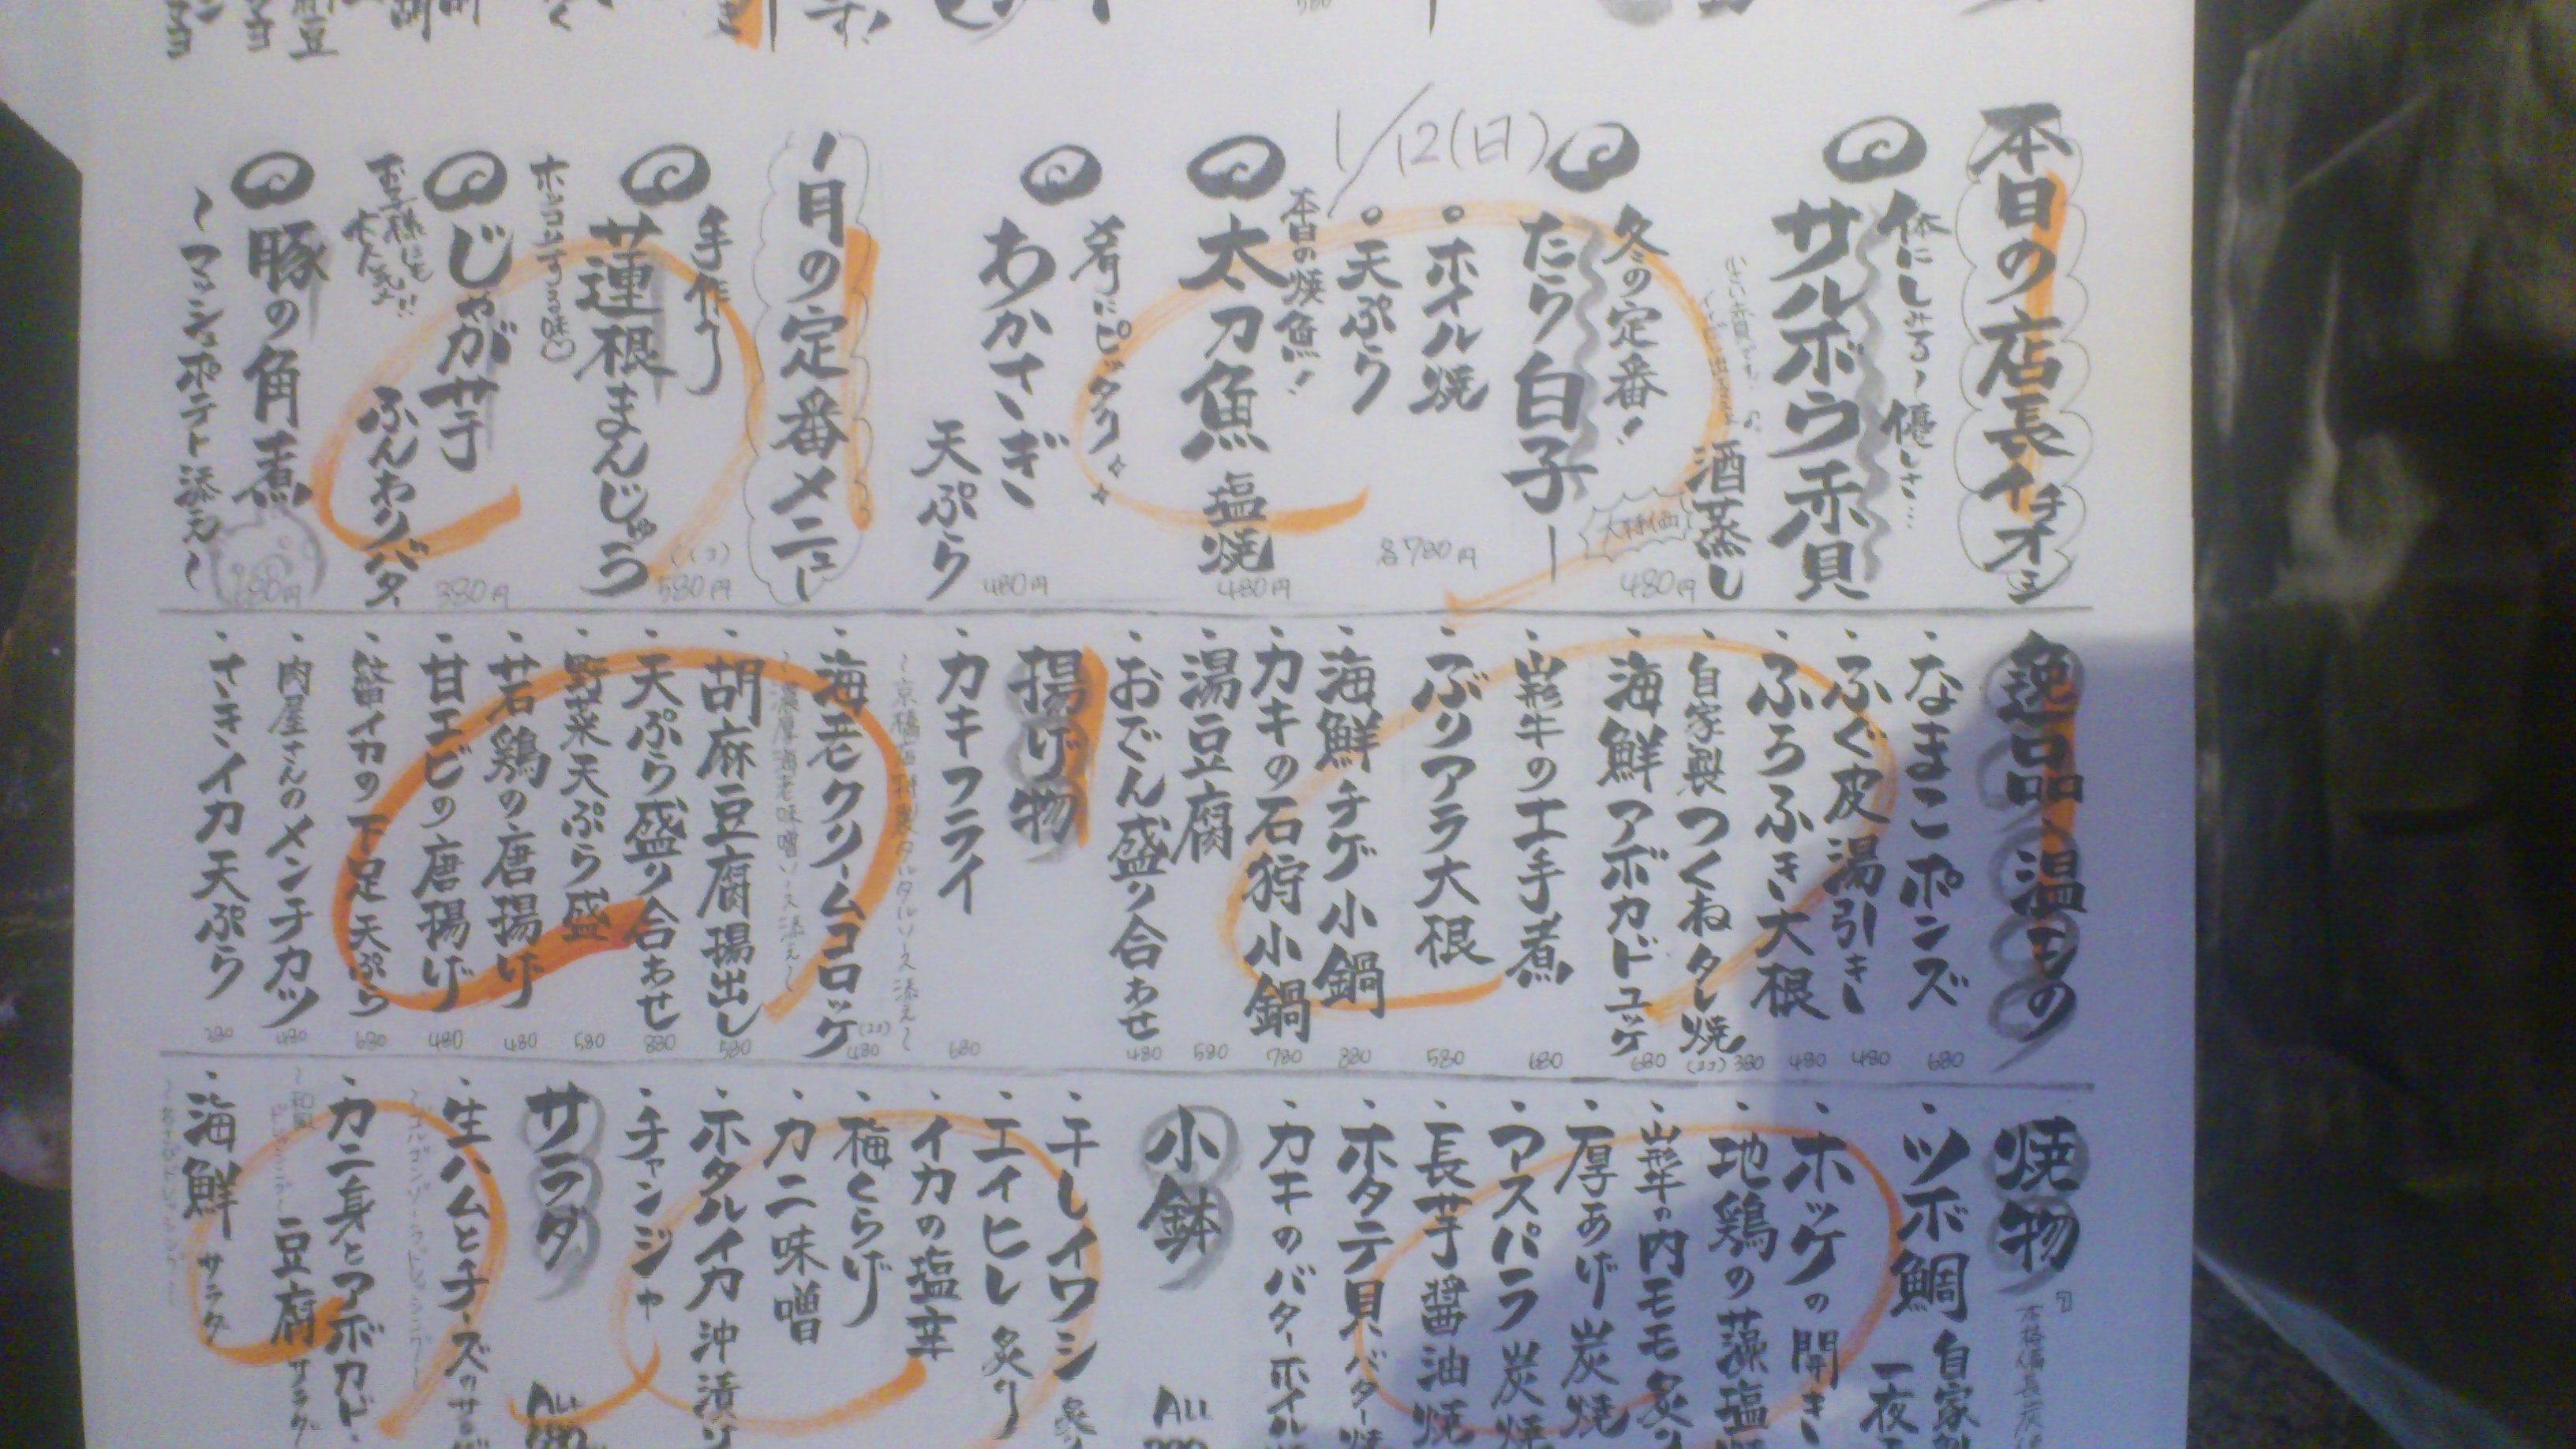 1/12(日)
本日の店長イチオシ
体にしみる〜優しさ…
サルボウ赤貝
酒蒸し
大特価
480円
冬の定番!
たら白子ー
。ホイル焼
。天ぷら
各780円
本日の焼魚!
太刀魚 塩焼
480円
肴にピッタリ
わかさぎ
天ぷら
480円
1月の定番メニュー
手作り
蓮根まんじゅう
(1コ)
580円
ホッコリする味
じゃが芋
ふんわりバター
380円
お子様にも
大人気!!
豚の角煮
〜マッシュポテト添え〜
逸品、温もの
・なまこポンズ
680
・ふぐ皮湯引き
480
・ふろふき大根
480
・自家製つくねタレ焼
(2コ) 380
・海鮮アボカドユッケ
680
・山形牛の土手煮
680
・ぶりアラ大根
580
・海鮮チゲ小鍋
880
・カキの石狩小鍋
780
・湯豆腐
580
・おでん盛り合わせ
480
揚げ物
・カキフライ
680
〜京橋店特製タルタルソース添え〜
・海老クリームコロッケ
(2コ)
480
〜濃厚海老味噌ソース添え〜
・胡麻豆腐揚出し
580
・天ぷら盛り合わせ
880
・野菜天ぷら盛
580
・若鶏の唐揚げ
480
・甘エビの唐揚げ
480
・紋甲イカの下足天ぷら
680
・肉屋さんのメンチカツ
480
・さきイカ天ぷら
焼物
・ツボ鯛 自家製
一夜
・ホッケの開き
・地鶏の藻塩
・山形牛の内モモ炙り
・厚あげ炭焼
・アスパラ炭焼
・長芋醤油焼
・ホタテ貝バター焼
・カキのバターホイル
小鉢
ALL
・干しイワシ
・エイヒレ炙り
・イカの塩辛
・梅くらげ
・カニ味噌
・ホタルイカ沖漬け
・チャンジャ
サラダ
ALL
・生ハムとチーズのサラダ
・カニ身とアボカド
豆腐サラダ
・海鮮サラダ